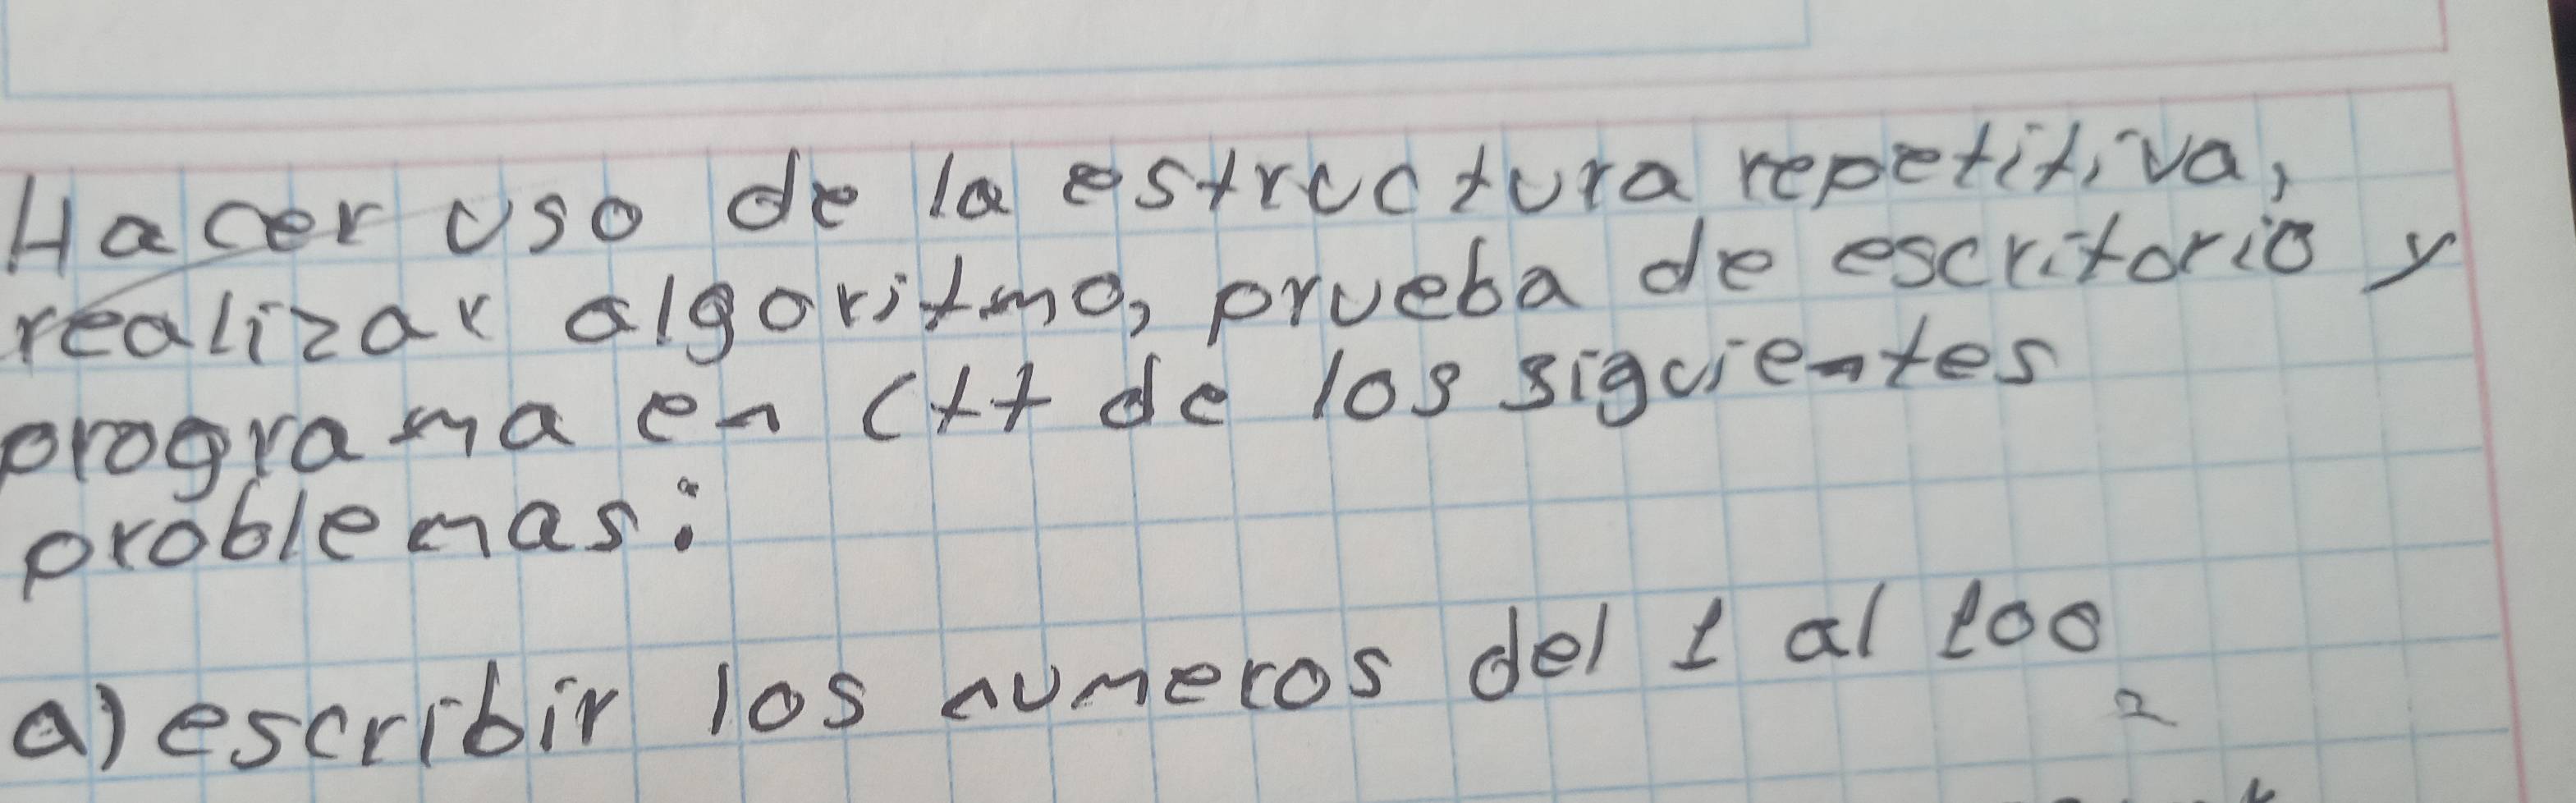 Hacer uso de la estructura repetitiva,
realizar algoritmo, prueba de escritorio y
programa en C++ de los siguientes
problemas:
a) escribir los numeros del 1 al 100
2